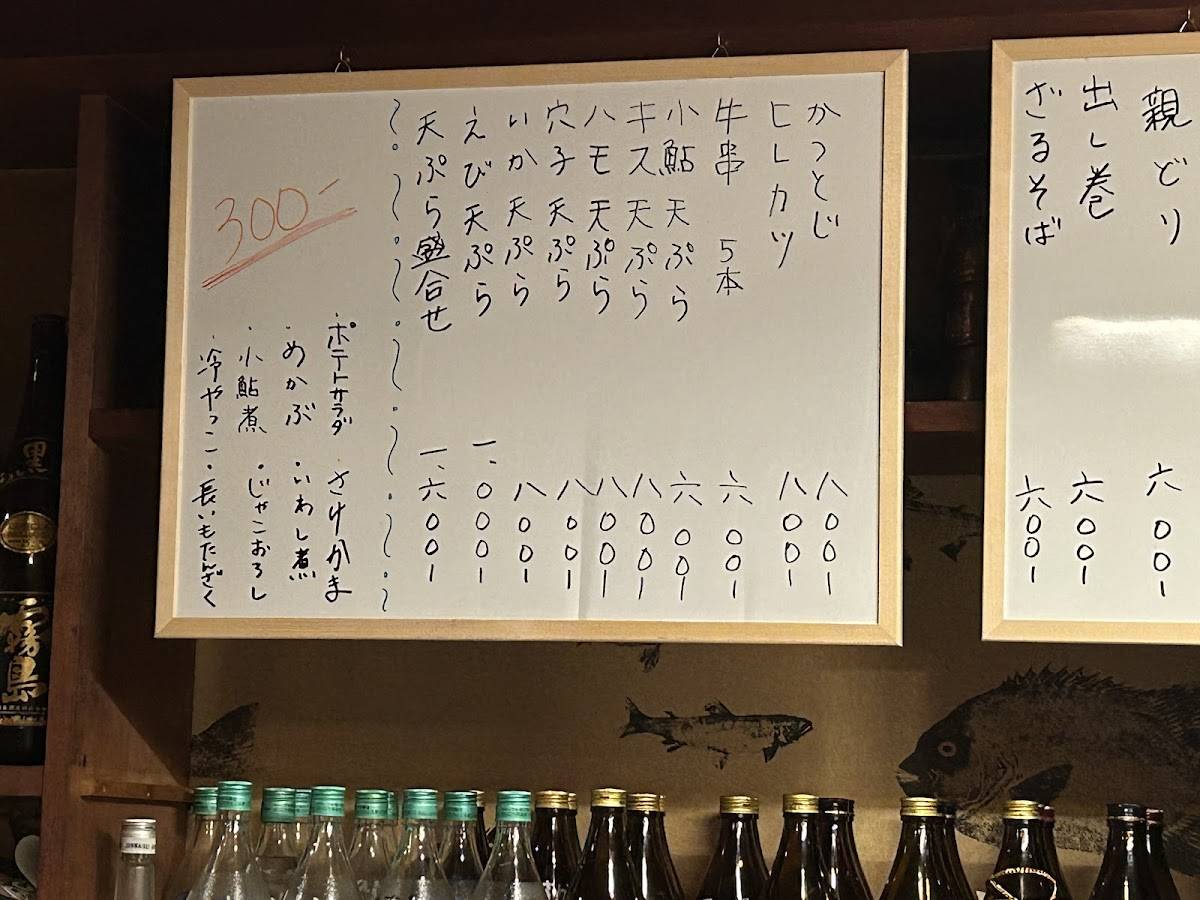 親どり 六〇〇-
出し巻 六〇〇-
ざるそば 六〇〇-
かつとじ 八〇〇-
ヒレカツ 八〇〇-
牛串 5本 六〇〇-
小鮎天ぷら 六〇〇-
キス天ぷら 八〇〇-
ハモ天ぷら 八〇〇-
穴子天ぷら 八〇〇-
いか天ぷら 八〇〇-
えび天ぷら 一、〇〇〇-
天ぷら盛合せ 一、六〇〇-
300-
・ポテトサラダ ・さけかま
・めかぶ ・いわし煮
・小鮎煮 ・じゃこおろし
・冷やっこ ・長いもたんざく
黒
霧島